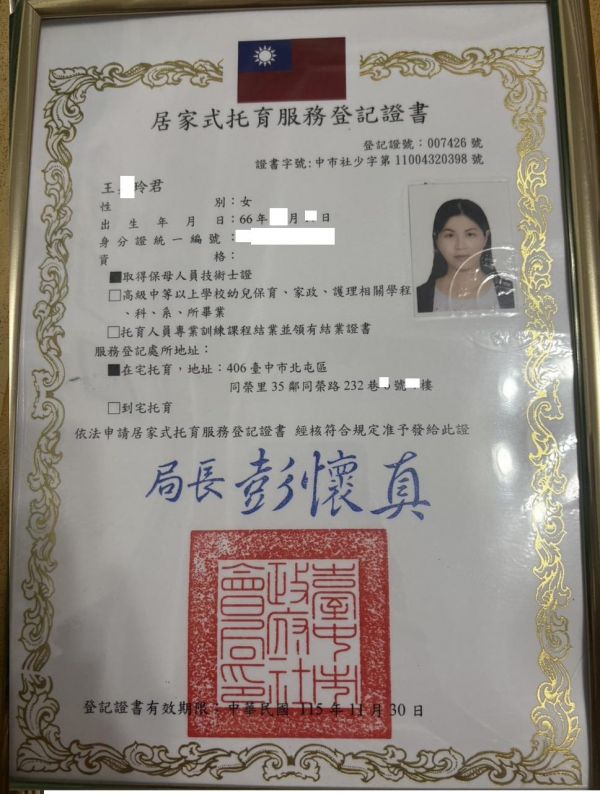 居家式托育服務登記證書
登記證號：007426 號
證書字號:中市社少字第 11004320398 號
王 玲君
性別：女
出生年月日：66 年 月 日
身分證統一編號：
資格：
■取得保母人員技術士證
□高級中等以上學校幼兒保育、家政、護理相關學程
、科、系、所畢業
□托育人員專業訓練課程結業並領有結業證書
服務登記處所地址：
■在宅托育，地址：406 臺中市北屯區
同榮里 35 鄰同榮路 232 巷 號 樓
□到宅托育
依法申請居家式托育服務登記證書 經核符合規定准予發給此證
局長 彭懷真
臺中市
政府社
會局印
登記證書有效期限：中華民國 115 年 11 月 30 日